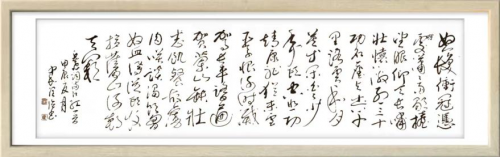 怒髮衝冠憑
雨歇擡
望眼仰天長嘯
壯懷激烈三十
功名塵與土八千
里路雲和月
莫等閒白了少
年頭空悲切
靖康恥猶未雪
臣子恨何時滅
駕長車踏破
賀蘭山缺壯
志飢餐胡虜
肉笑談渴飲匈
奴血待從頭收
拾舊山河朝
天闕
甲辰